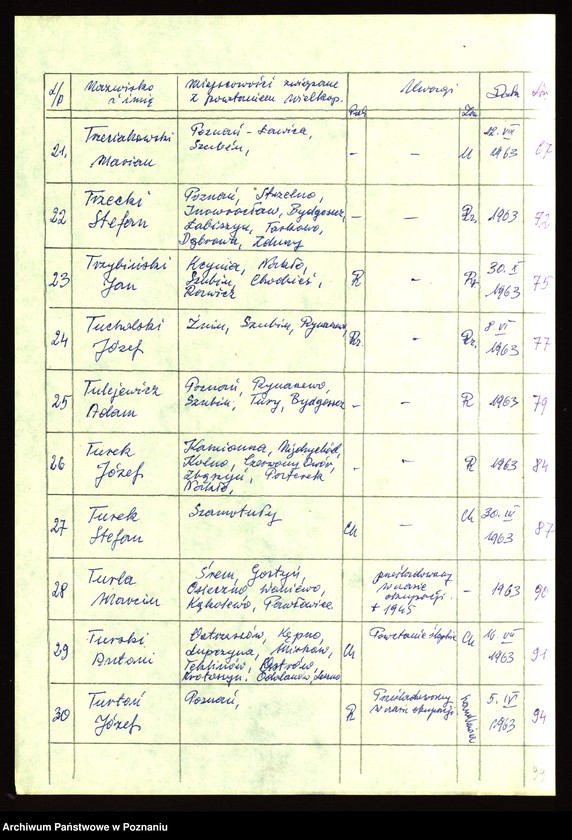 L/p Nazwisko i imię Miejscowości związane z powstaniem wielkop. Uwagi Data
21. Trzeciakowski Marian Poznań - Ławica, Szubin, - - M 12. VIII 1963 67
22 Trzecki Stefan Poznań, Strzelno, Inowrocław, Bydgoszcz, Łabiszyn, Tarkowo, Dąbrowa, Zduny - - Rz. 1963 72
23 Trzybiński Jan Kcynia, Nakło, Szubin, Chodzież, Rawicz R - Rz 30. X 1963 75
24 Tucholski Józef Żnin, Szubin, Rynarzewo, Rz. - Rz. 8 VI 1963 77
25 Tulejewicz Adam Poznań, Rynarzewo, Szubin, Tury, Bydgoszcz - - R 1963 79
26 Turek Józef Kamionna, Międzychód, Kolno, Czerwony Dwór, Zbąszyń, Nakło, - - R 1963 84
27 Turek Stefan Szamotuły Ch - Ch 30. IV 1963 87
28 Turla Marcin Śrem, Gostyń, Osieczna, Woniewo, Kąkolewo, Pawłowice prześladowany w czasie okupacji. + 1945 - 1963 90
29 Turski Antoni Ostrzeszów, Kępno, Kuźnica, Teklinów, Ostrów, Krotoszyn, Odolanów, Ch Powstanie śląskie Ch 16. VII 1963 91
30 Turtoń Józef Poznań, R Prześladowany w czasie okupacji. 5. IV 1963 94
99
Archiwum Państwowe w Poznaniu